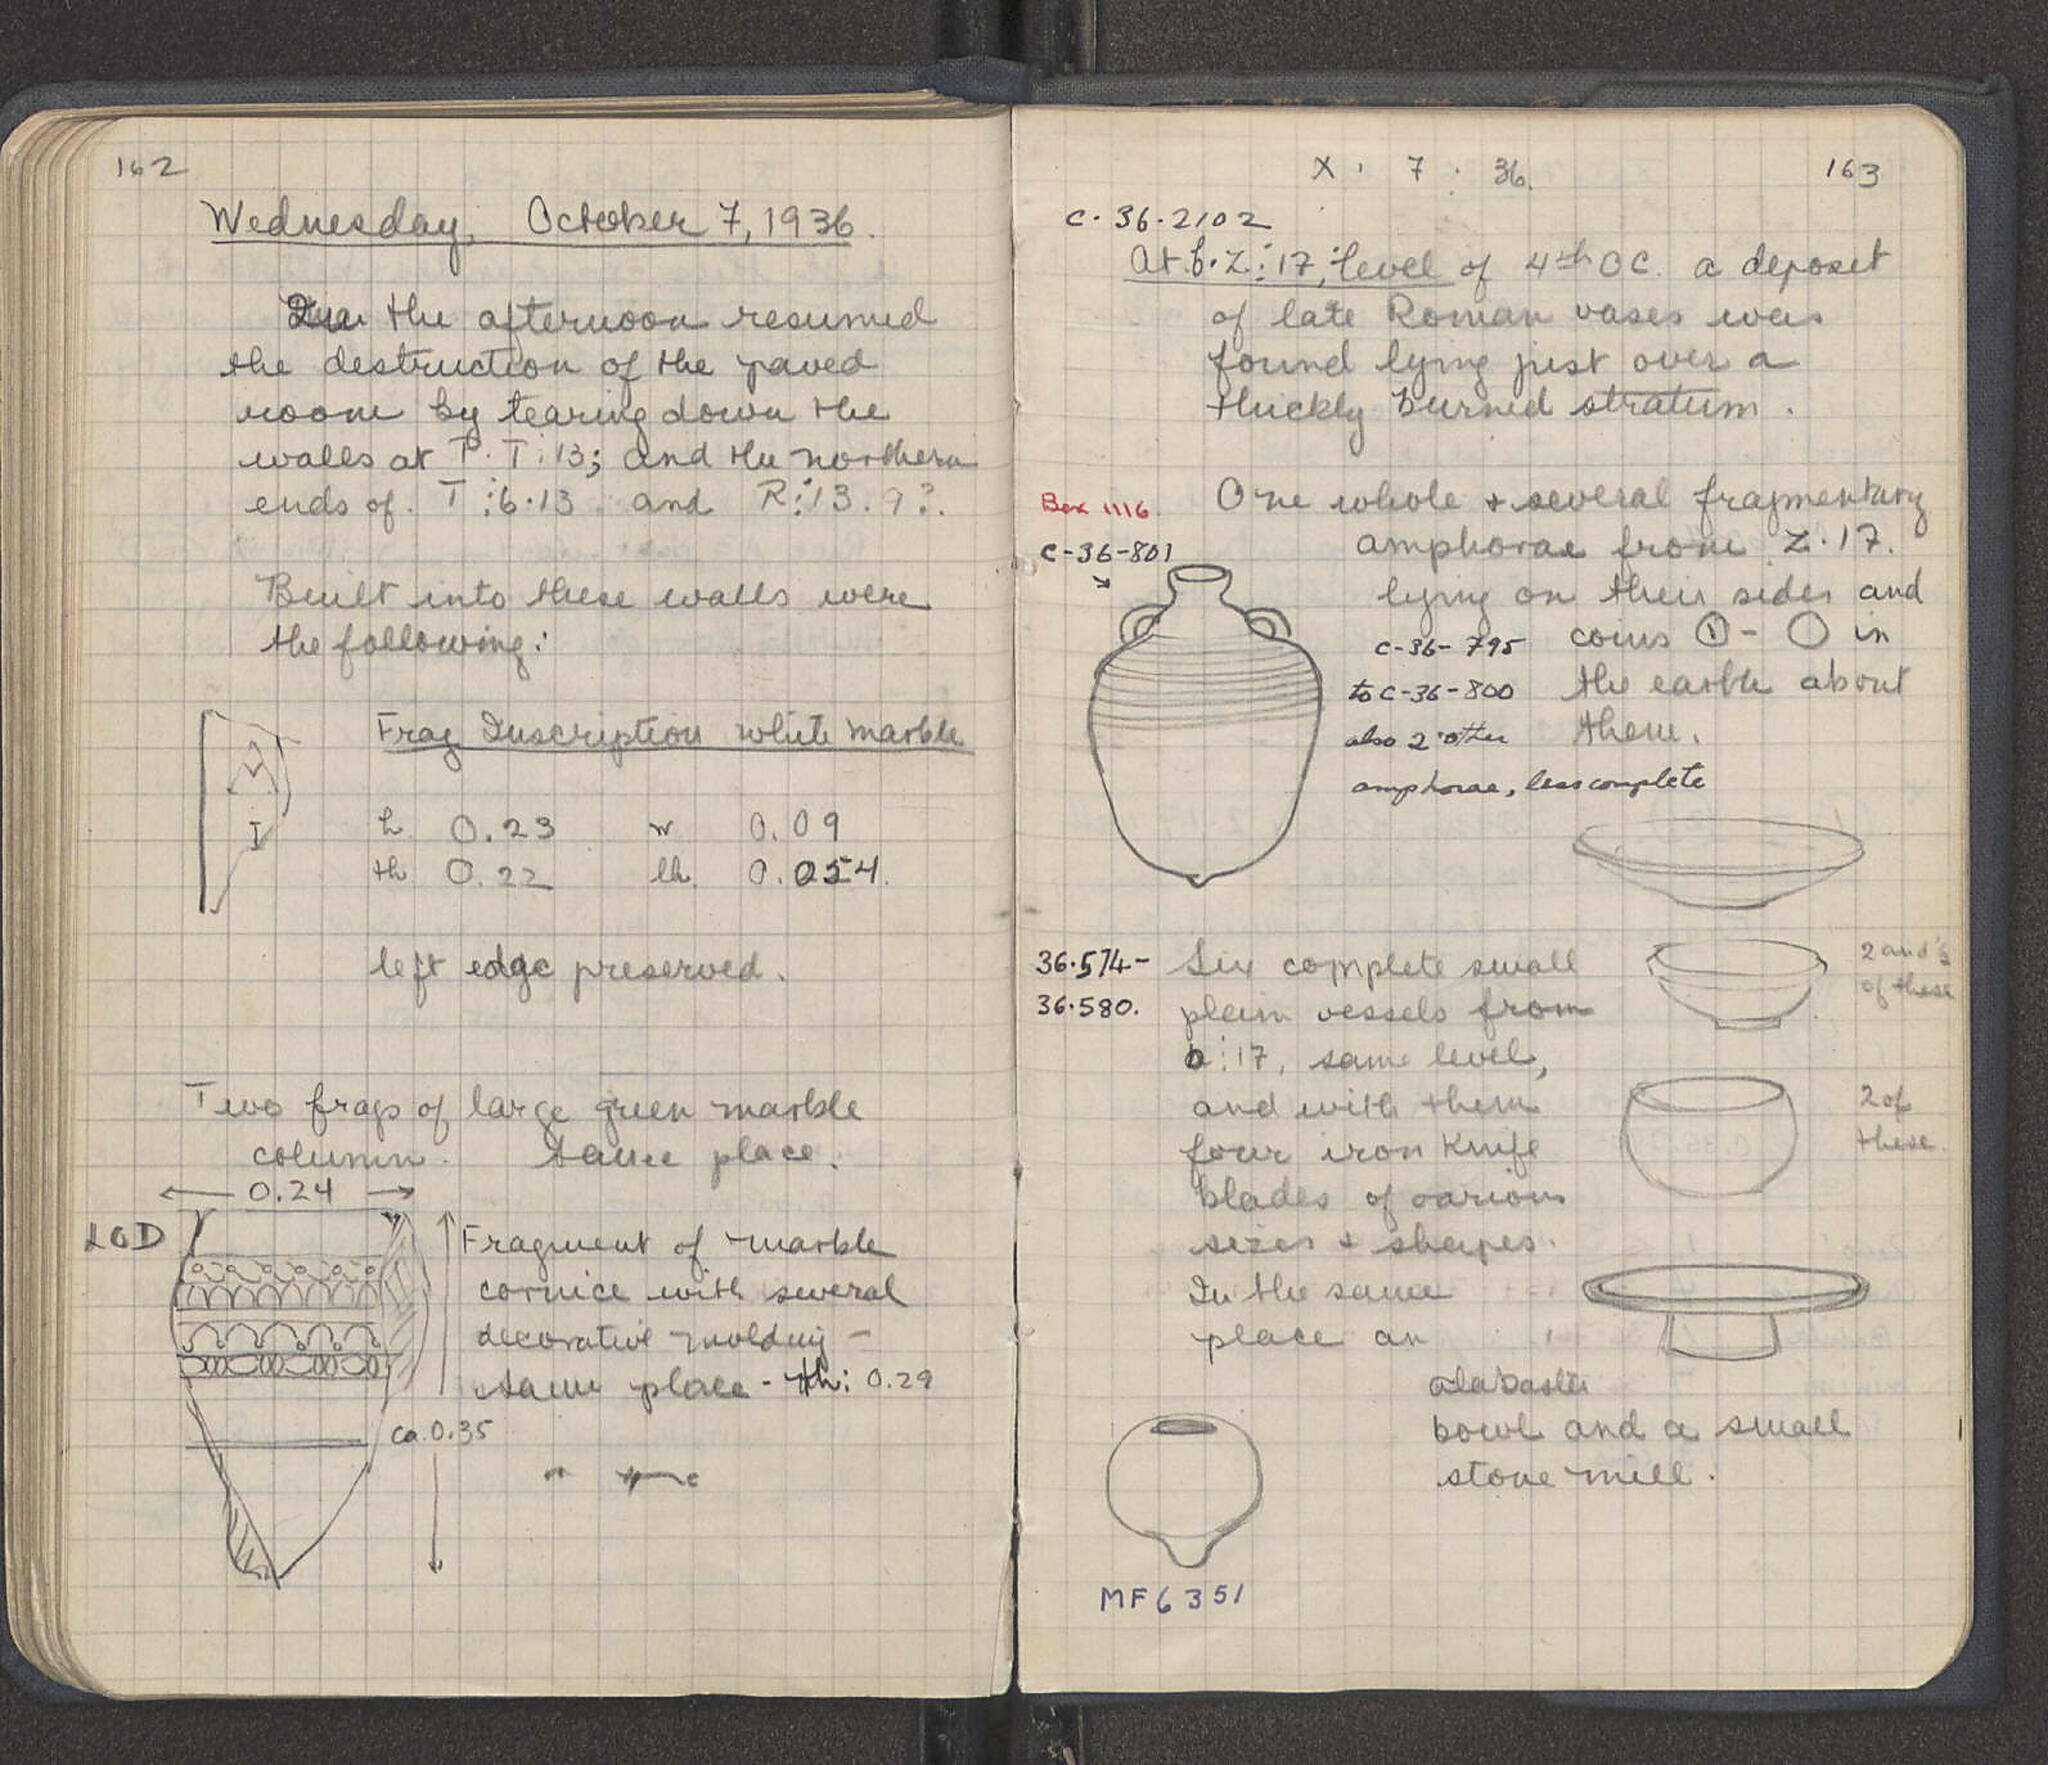 162
Wednesday, October 7, 1936.
In the afternoon resumed
the destruction of the paved
room by tearing down the
walls at P. T:13; and the northern
ends of T:6.13 and R:13.9?.
Built into these walls were
the following:
Frag Inscription white marble
h 0.23 w 0.09
th 0.22 lh. 0.054.
left edge preserved.
Two frags of large green marble
column. same place.
0.24
Fragment of marble
cornice with several
decorative molding -
same place - th: 0.29
ca. 0.35
X . 7 . 36. 163
C.36.2102
At b.Z:17, level of 4th OC. a deposit
of late Roman vases was
found lying just over a
thickly burned stratum.
Box 1116 One whole + several fragmentary
C-36-801 amphorae from Z.17.
lying on their sides and
C-36-795 coins ① - ◯ in
to C-36-800 the earth about
also 2 other them.
amphorae, less complete
36.574- Six complete small
36.580. plain vessels from
b:17, same level,
and with them
four iron knife
blades of various
sizes + shapes.
2 and ½
of these
2 of
these
In the same
place an
alabaster
bowl and a small
stone mill.
MF 6351